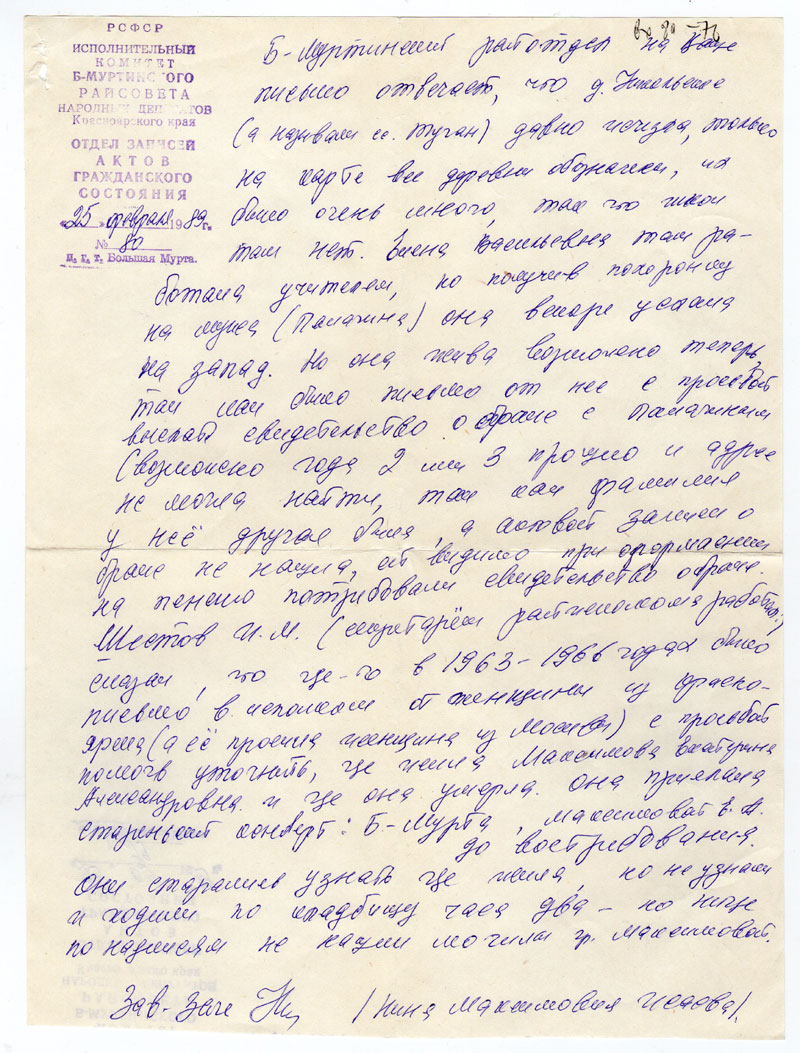 РСФСР
ИСПОЛНИТЕЛЬНЫЙ
КОМИТЕТ
Б-МУРТИНСКОГО
РАЙСОВЕТА
НАРОДНЫХ ДЕПУТАТОВ
Красноярского края
ОТДЕЛ ЗАПИСЕЙ
АКТОВ
ГРАЖДАНСКОГО
СОСТОЯНИЯ
"25" февраля 1989 г.
№ 80
п. г. т. Большая Мурта.
Б-Муртинский райотдел на Ваше
письмо отвечает, что д.
(а называли её Туган) давно исчезла, только
на карте все деревни обозначен, их
было очень много, так что школ
там нет. Елена Васильевна там ра-
ботала учителем, но получив похоронку
на мужа (Палачина) она вскоре уехала
на запад. Но она жива возможно теперь,
так как было письмо от нее с просьбой
выслать свидетельство о браке с Палачиным
(возможно года 2 или 3 прошло и адрес
не могла найти, так как фамилия
у неё другая была, а актовой записи о
браке не нашла, ей видимо при оформлении
на пенсию потребовали свидетельство о браке.
Шестов И.М. (секретарём райисполкома работал)
сказал, что где-то в 1963-1966 годах было
письмо в исполком от женщины из Красно-
ярска (а её просила женщина из Москвы) с просьбой
помочь уточнить, где жила Максимова Екатерина
Александровна и где она умерла. Она прислала
старенький конверт: Б-Мурта, Максимовой Е. А.
до востребования.
Они старались узнать где жила, но не узнали
и ходили по кладбищу часа два - но нигде
по надписям не нашли могилы гр. Максимовой.
Зав. Загс /Нина Максимовна Исаова/.